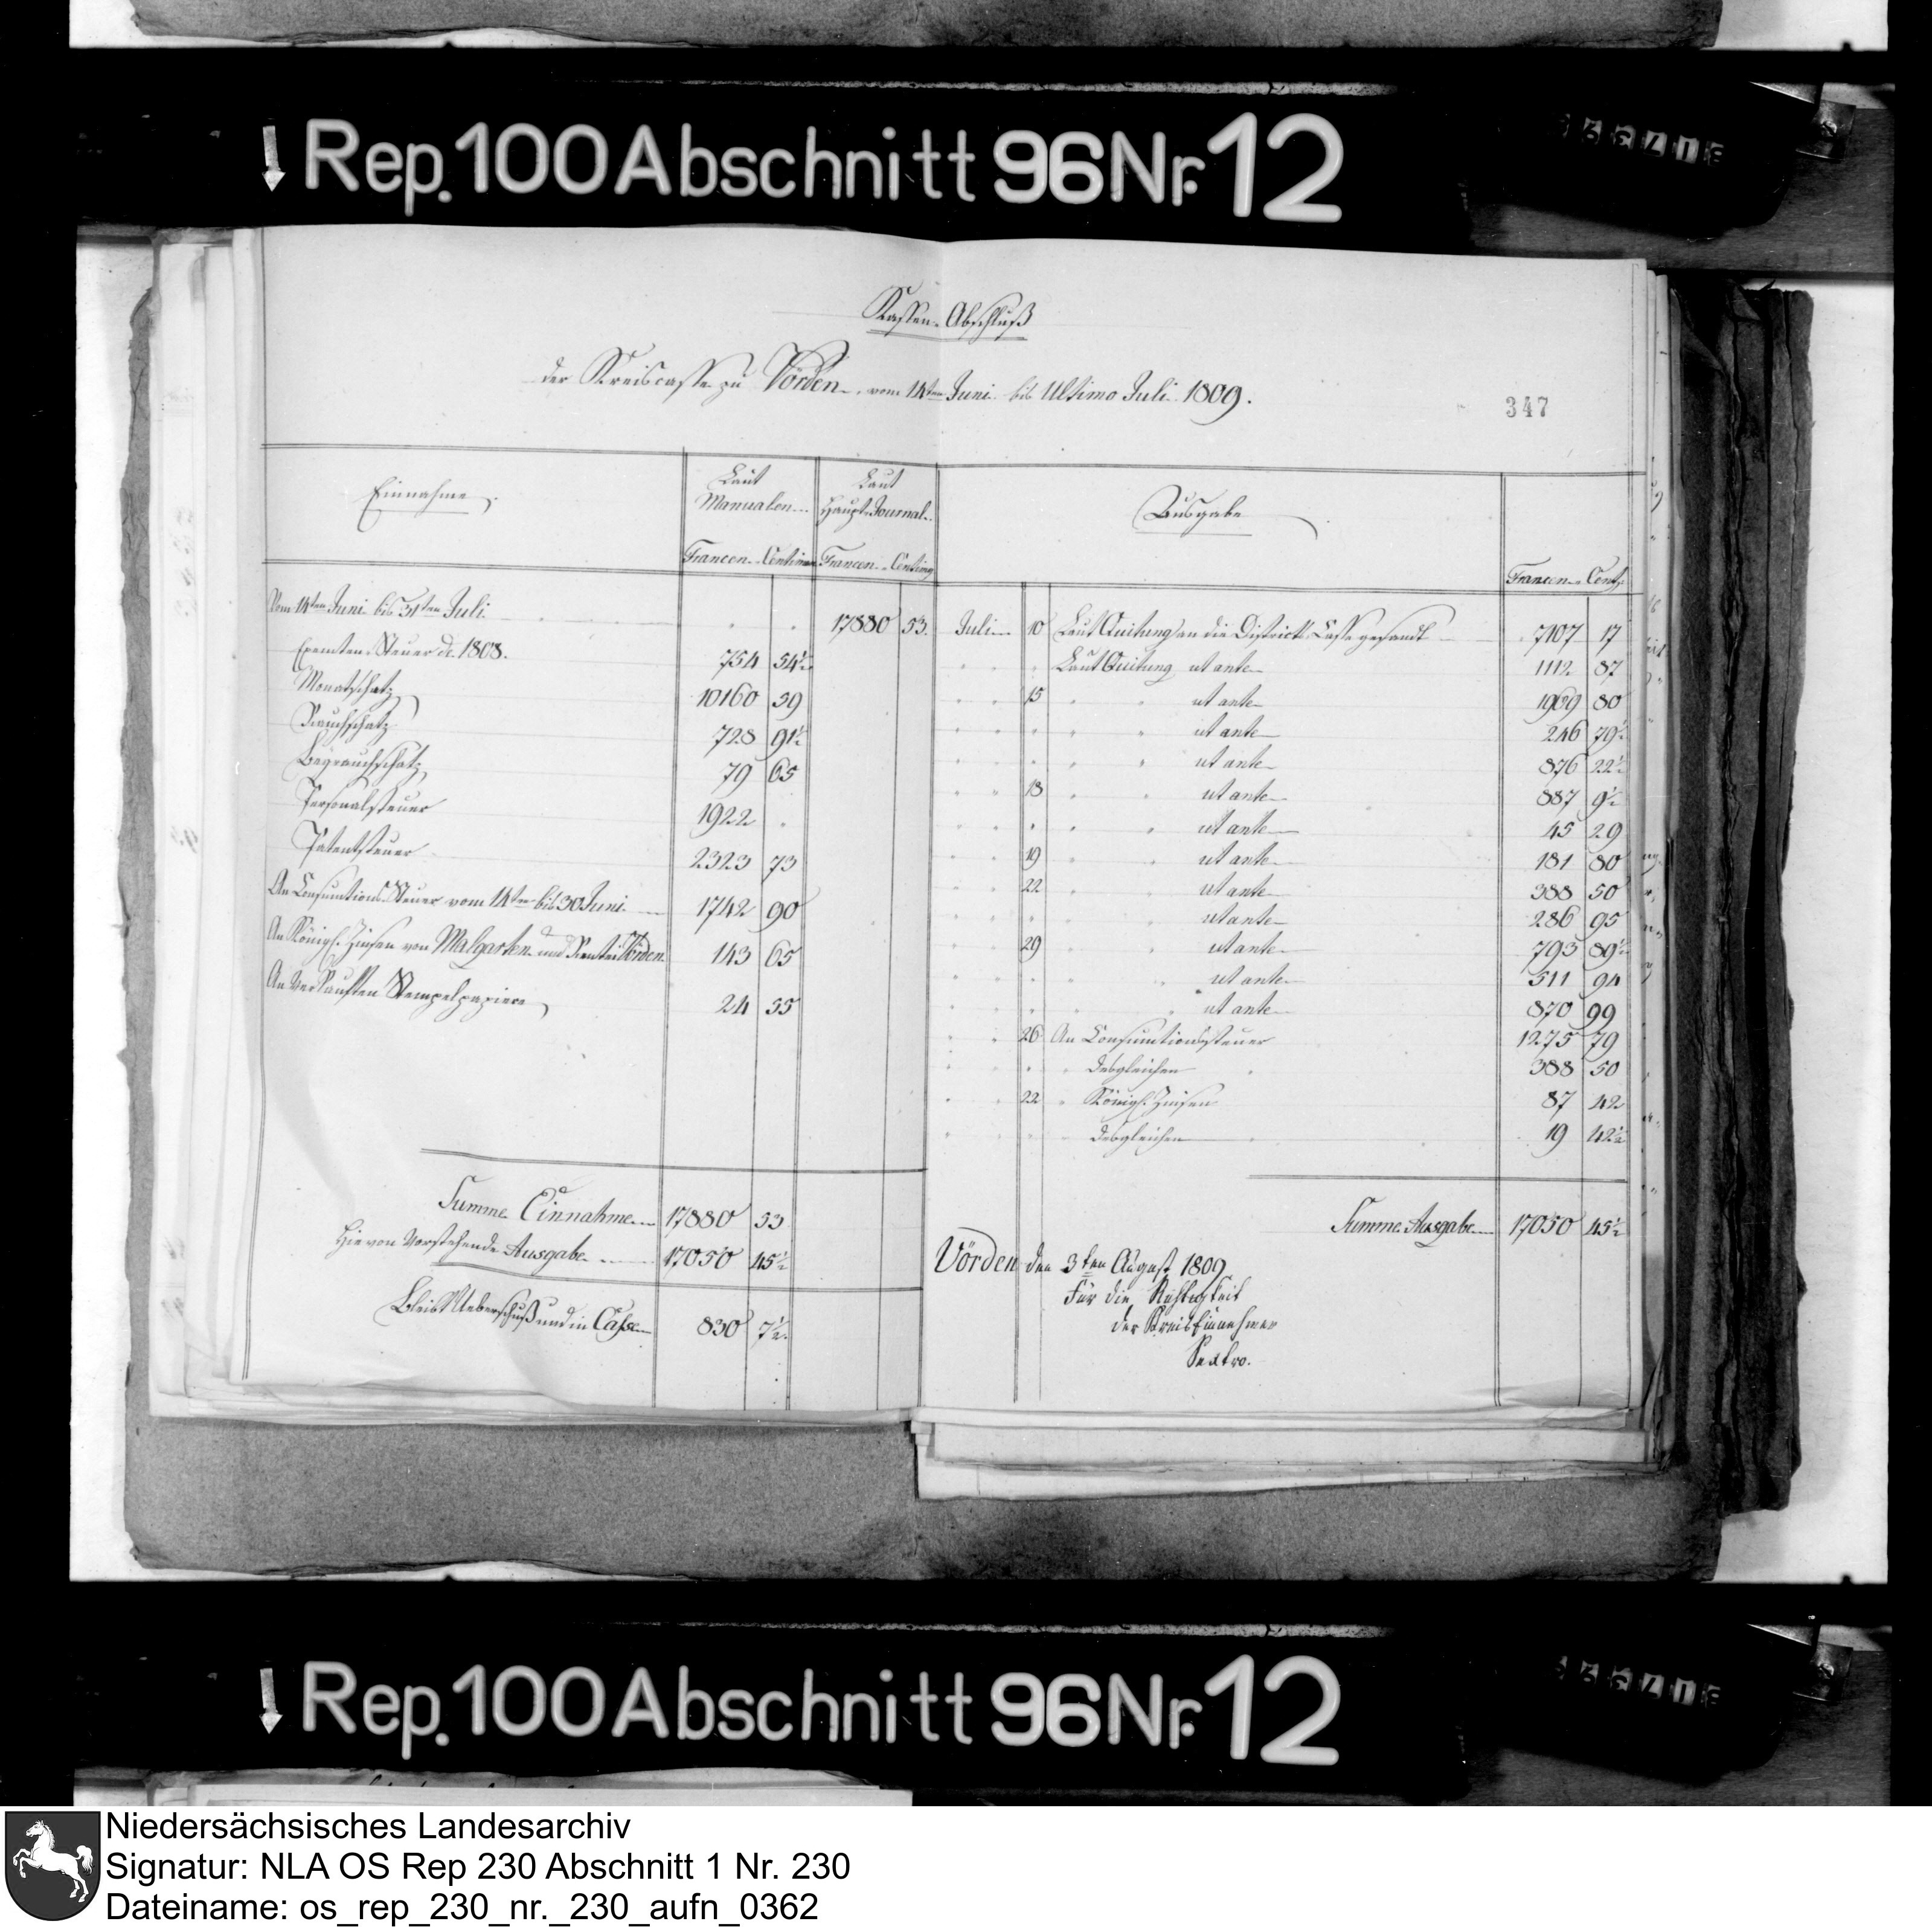 Rep. 100 Abschnitt 96 Nr. 12
Kassen-Abschluß
der Kreiscasse zu Vörden, vom 14ten Juni bis Ultimo Juli 1809.
347
Einnahme.
Laut Manualen
Laut Haupt-Journal
Ausgabe
Francen Centimen Francen Centimen
Francen Cent.
Vom 14ten Juni bis 31ten Juli 17880 53.
Exemten Steuer de 1808. 754 54½
Monatschatz 10160 59
Rauchschatz 728 91½
Beyrauchschatz 79 65
Personalsteuer 1922 .
Patentsteuer 2323 73
An Consumtions Steuer vom 14ten bis 30 Juni 1742 90
An Königl. Zinsen von Malgarten und Rentei Vörden 143 65
An Verkauften Stempelpapiere 24 55
Summe Einnahme 17880 53
Hievon Vorstehende Ausgabe 17050 45½
Bleibt Ueberschuß und in Casse 830 7½.
Juli 10 Laut Quitung an die Districts Casse gesandt 7107 17
Laut Quitung ut ante 1112 87
15 ut ante 1969 80
ut ante 246 79½
ut ante 876 22½
18 ut ante 887 9½
ut ante 45 29
19 ut ante 181 80
22 ut ante 388 50
ut ante 286 95
29 ut ante 793 89½
ut ante 511 94
ut ante 870 99
26 An Consumtionssteuer 1275 79
desgleichen 388 50
22 Königl. Zinsen 87 42
desgleichen 19 42½
Summe Ausgabe 17050 45½
Vörden den 3ten August 1809
Für die Richtigkeit
der Kreis Einnehmer
Sextro.
Rep. 100 Abschnitt 96 Nr. 12
Niedersächsisches Landesarchiv
Signatur: NLA OS Rep 230 Abschnitt 1 Nr. 230
Dateiname: os_rep_230_nr._230_aufn_0362